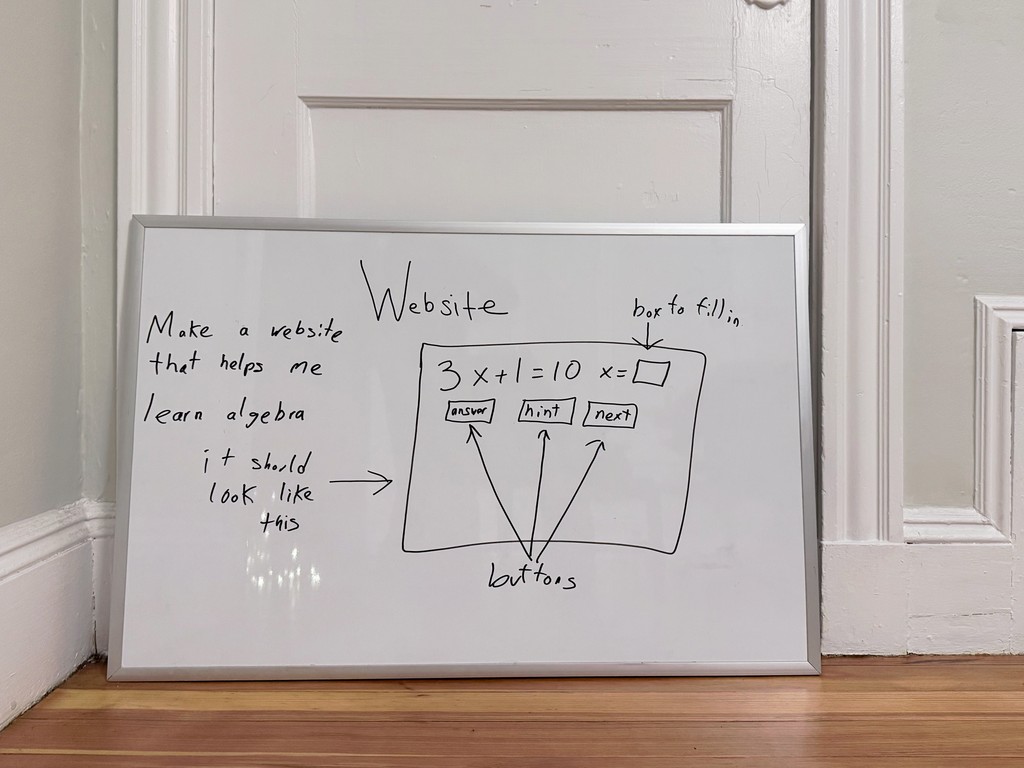 Website
Make a website
that helps me
learn algebra
it should
look like
this
box to fill in
3x+1=10 x=
answer hint next
buttons